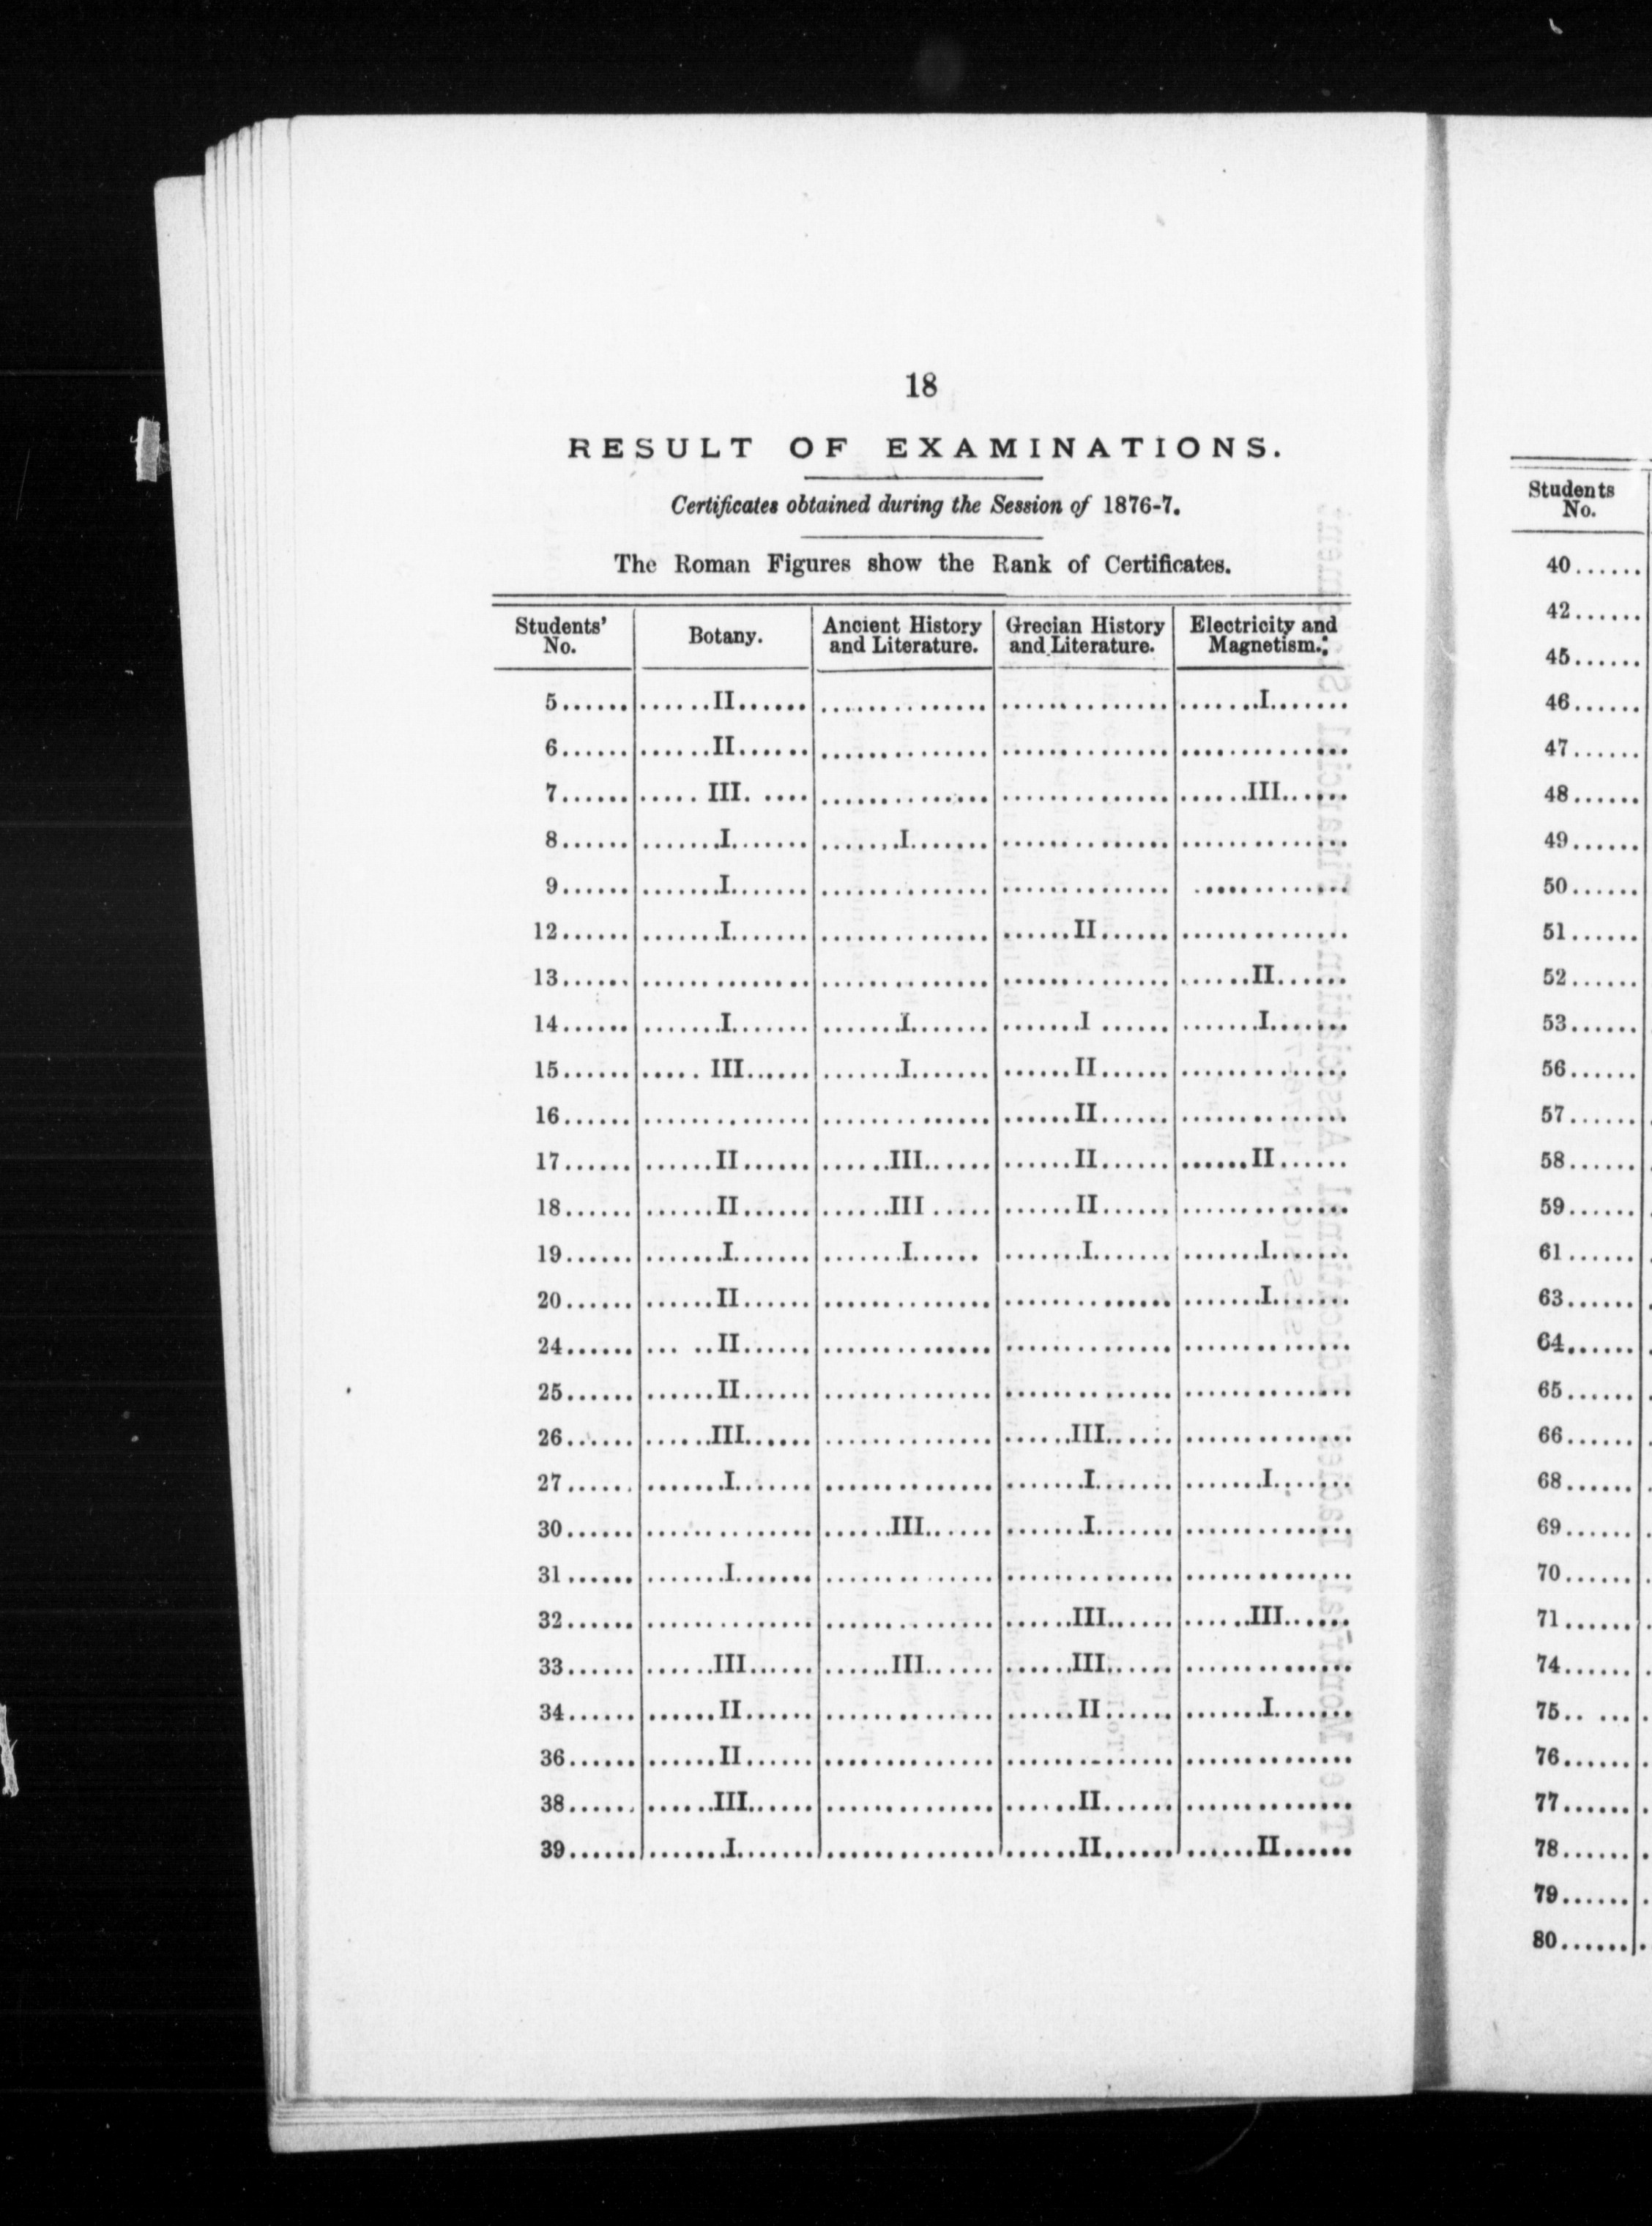 18
RESULT OF EXAMINATIONS.
Certificates obtained during the Session of 1876-7.
The Roman Figures show the Rank of Certificates.
Students' No. Botany. Ancient History and Literature. Grecian History and Literature. Electricity and Magnetism.
5...... ......II...... .............. .............. .......I.......
6...... ......II...... .............. .............. ..............
7...... ..... III. .... .............. .............. ......III......
8...... .......I....... .......I....... .............. ..............
9...... .......I....... .............. .............. ..............
12...... .......I....... .............. ......II...... ..............
13...... .............. .............. .............. ......II......
14...... .......I....... .......I....... .......I ...... .......I.......
15...... ..... III...... .......I....... ......II...... ..............
16...... .............. .............. ......II...... ..............
17...... ......II...... ......III...... ......II...... ......II......
18...... ......II...... ......III ..... ......II...... ..............
19...... .......I....... .......I...... .......I....... .......I.......
20...... ......II...... .............. .............. .......I.......
24...... ... ..II...... .............. .............. ..............
25...... ......II...... .............. .............. ..............
26...... ......III...... .............. ......III...... ..............
27...... .......I....... .............. .......I....... .......I.......
30...... .............. ......III...... .......I....... ..............
31...... .......I....... .............. .............. ..............
32...... .............. .............. ......III...... ......III......
33...... ......III...... ......III...... ......III...... ..............
34...... ......II...... .............. ......II...... .......I.......
36...... ......II...... .............. .............. ..............
38...... ......III...... .............. ......II...... ..............
39...... .......I....... .............. ......II...... ......II......
Students
No.
40......
42......
45......
46......
47......
48......
49......
50......
51......
52......
53......
56......
57......
58......
59......
61......
63......
64......
65......
66......
68......
69......
70......
71......
74......
75.. ...
76......
77......
78......
79......
80......